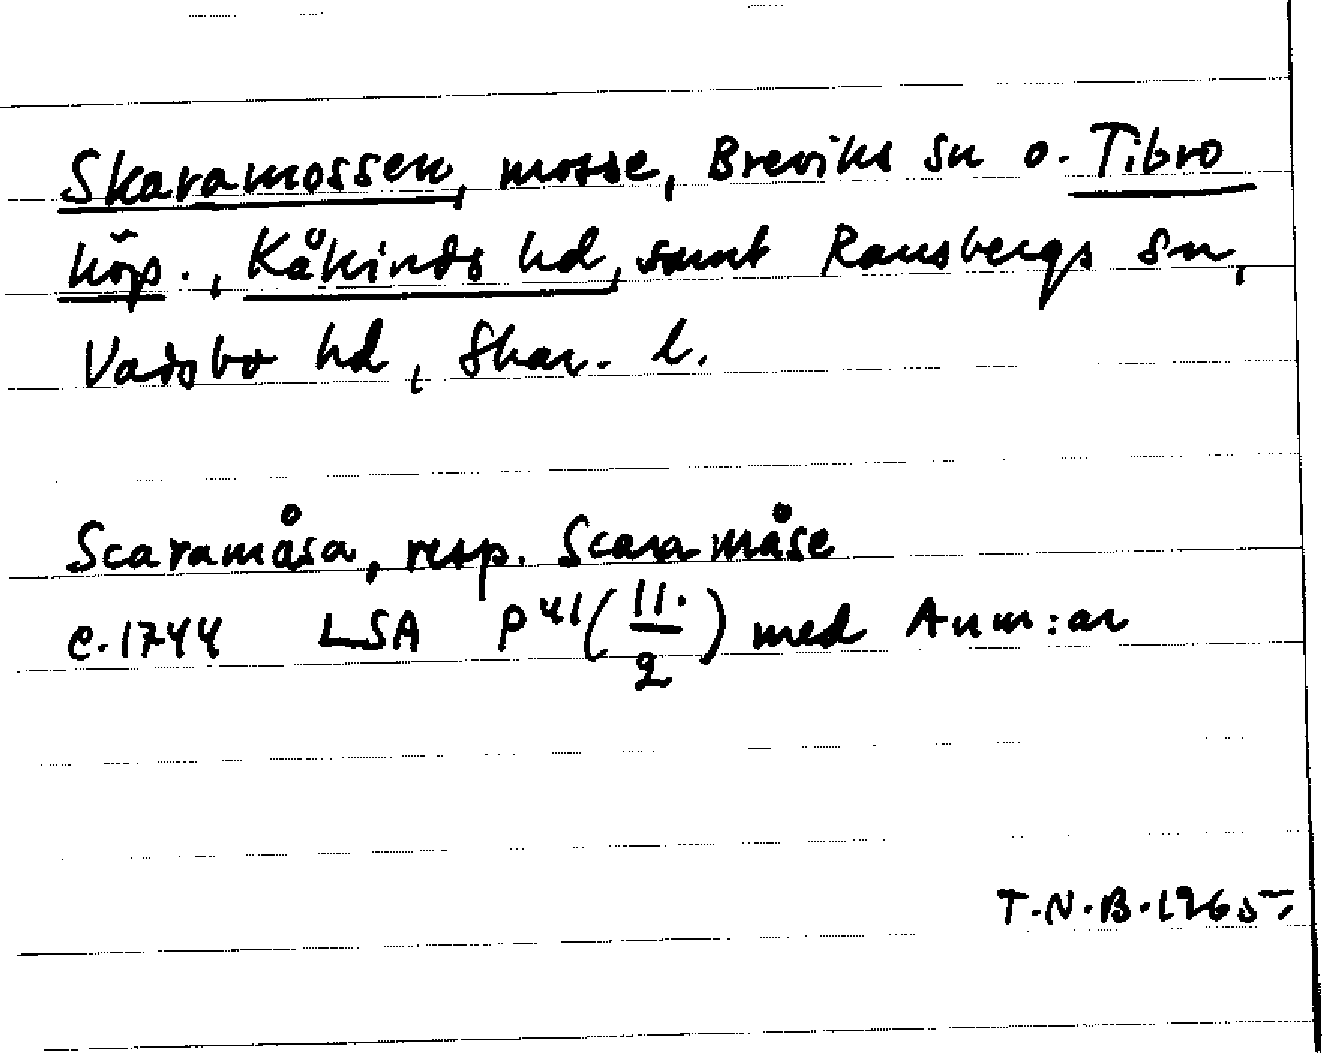 Skaramossen, mosse, Breviks sn o. Tibro
köp., Kåkinds hd, samt Ransbergs sn,
Vadsbo hd, Skar. l.
Scaramåsa, resp. Scaramåse
c. 1744 LSA P 41 (11./2) med Anm:ar
T.N.B. 1965